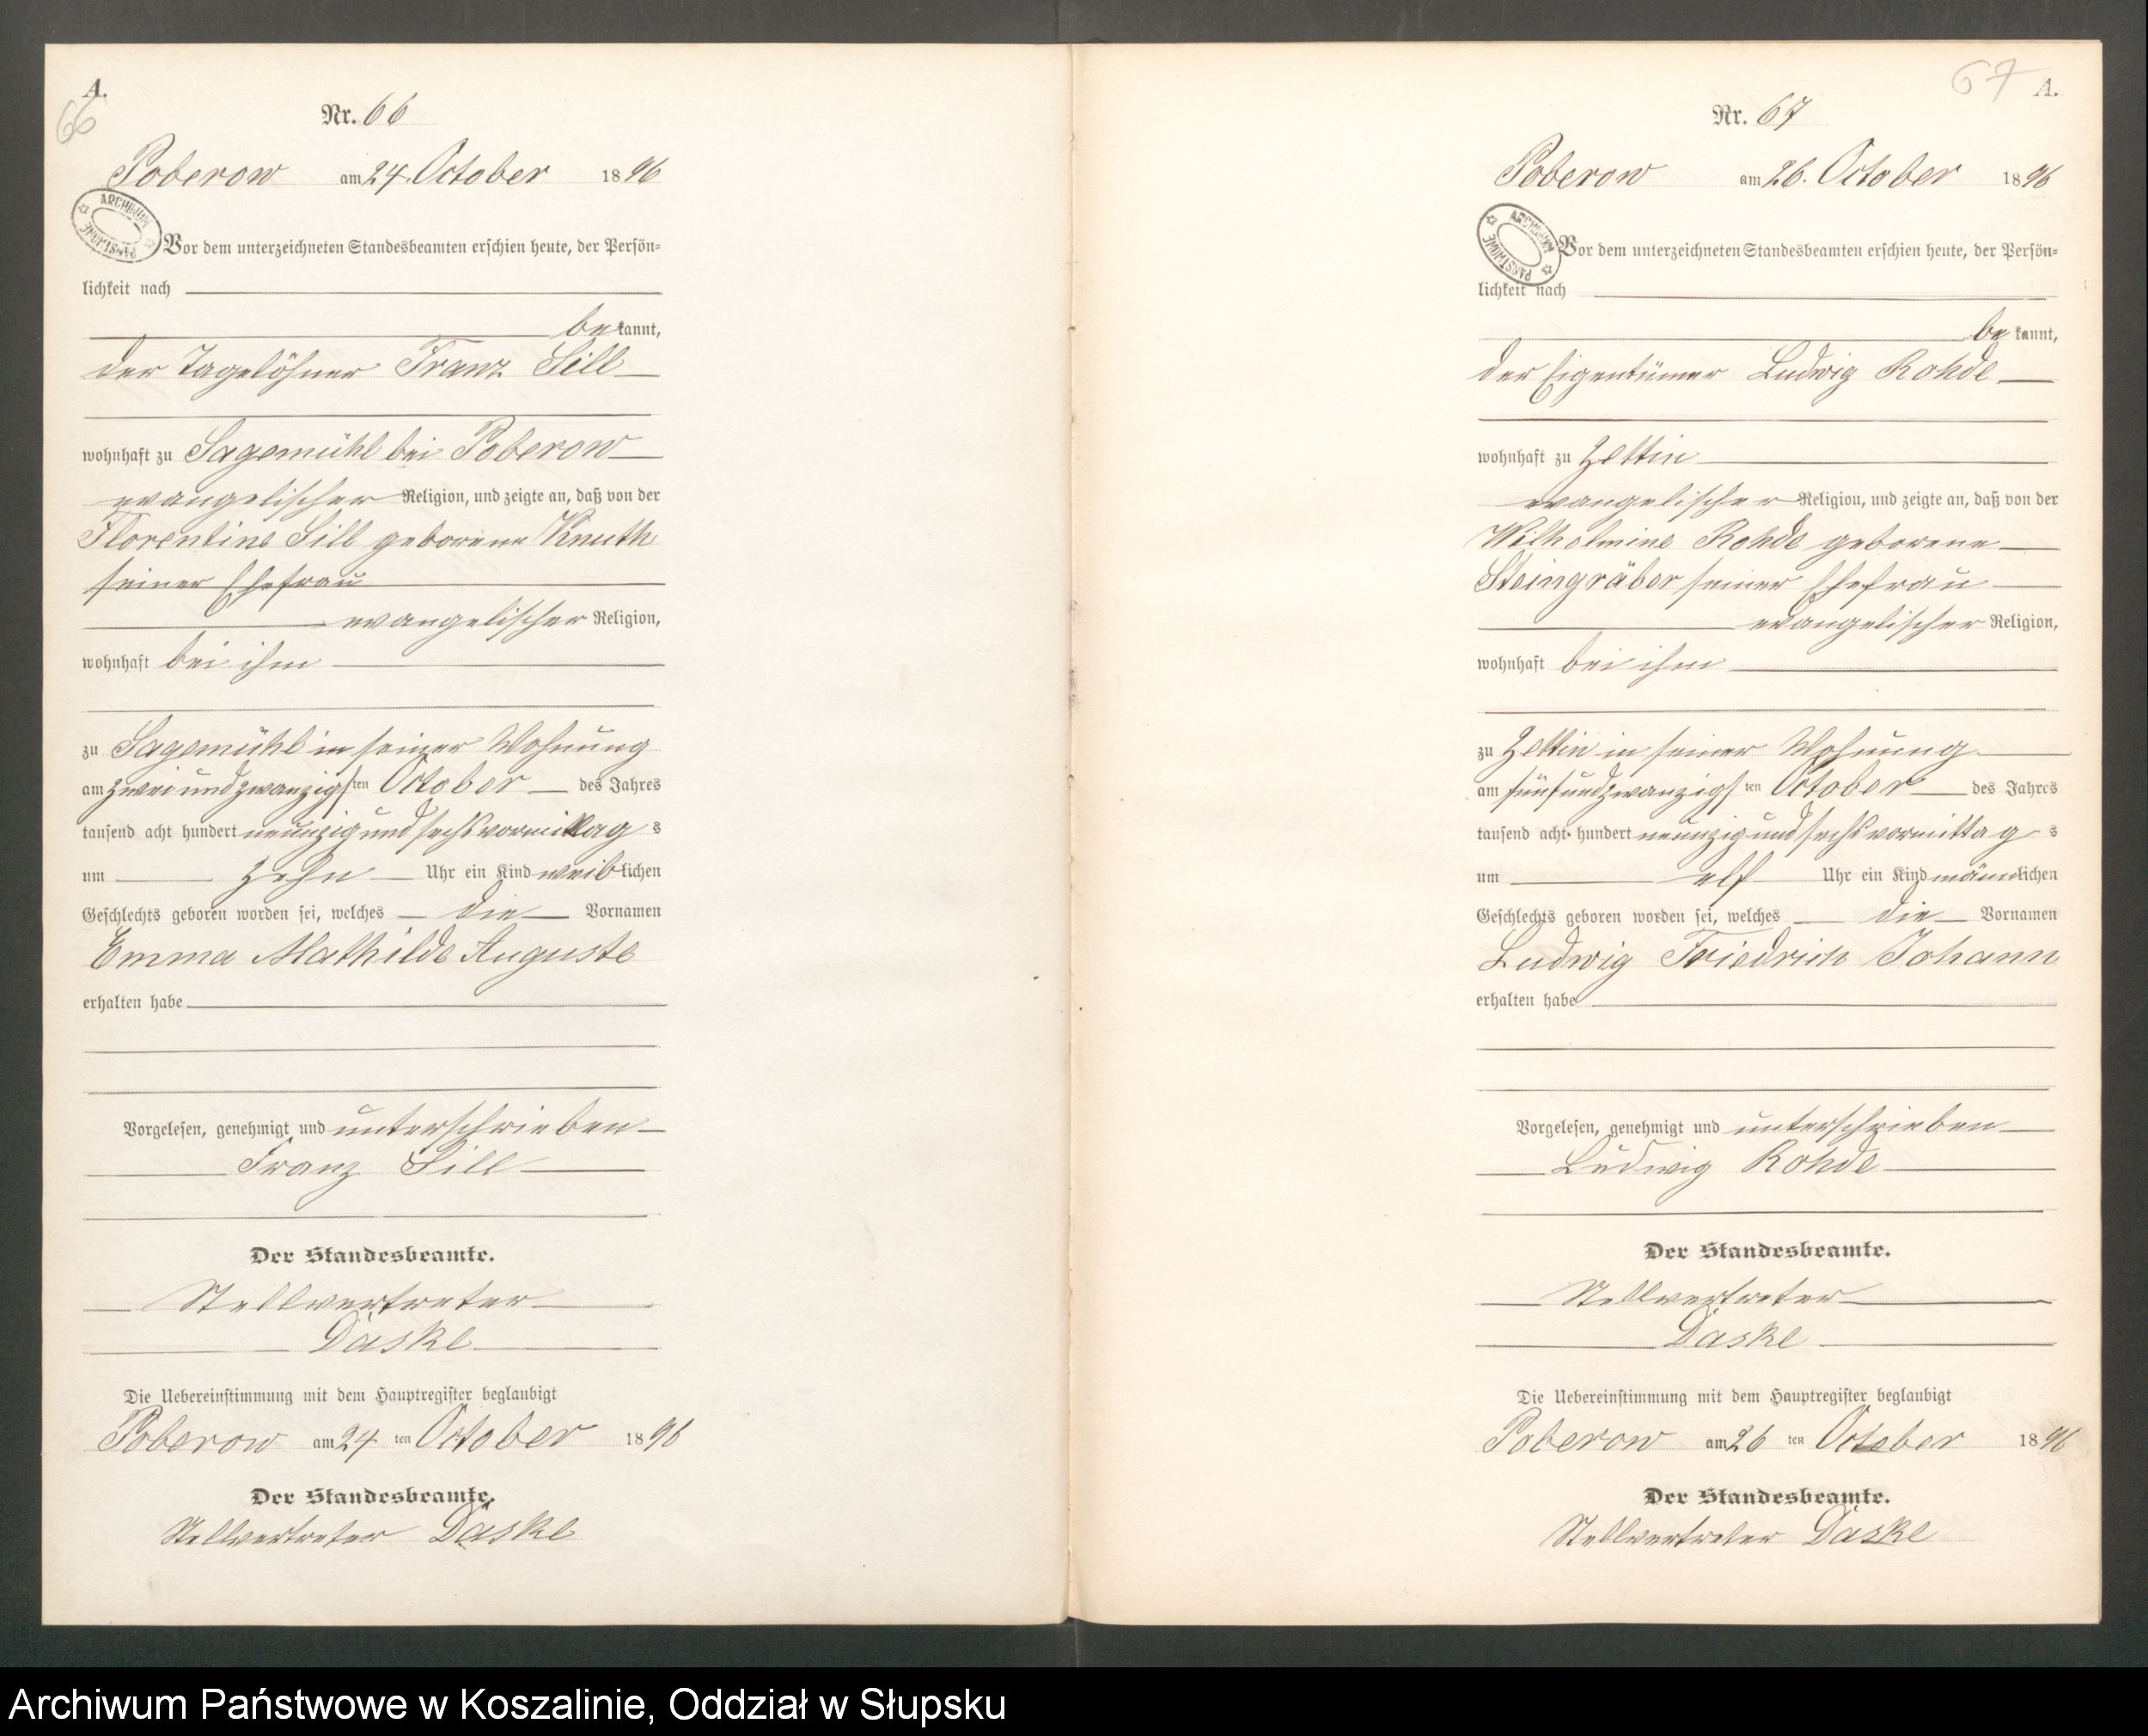 A.
66
Nr. 66
Poberow am 24. October 1896
ARCHIWUM PAŃSTWOWE
Vor dem unterzeichneten Standesbeamten erschien heute, der Persön=
lichkeit nach
bekannt,
der Tagelöhner Franz Sill
wohnhaft zu Sagemühl bei Poberow
evangelischer Religion, und zeigte an, daß von der
Florentine Sill geborene Knuth
seiner Ehefrau
evangelischer Religion,
wohnhaft bei ihm
zu Sagemühl in seiner Wohnung
am zweiundzwanzigsten October des Jahres
tausend acht hundert neunzig und sechs vormittags
um zehn Uhr ein Kind weiblichen
Geschlechts geboren worden sei, welches die Vornamen
Emma Mathilde Auguste
erhalten habe
Vorgelesen, genehmigt und unterschrieben
Franz Sill
Der Standesbeamte.
Stellvertreter
Daske
Die Uebereinstimmung mit dem Hauptregister beglaubigt
Poberow am 24 ten October 1896
Der Standesbeamte.
Stellvertreter Daske
67 A.
Nr. 67
Poberow am 26. October 1896
ARCHIWUM PAŃSTWOWE
Vor dem unterzeichneten Standesbeamten erschien heute, der Persön=
lichkeit nach
bekannt,
der Eigentümer Ludwig Rohde
wohnhaft zu Zettin
evangelischer Religion, und zeigte an, daß von der
Wilhelmine Rohde geborene
Steingräber seiner Ehefrau
evangelischer Religion,
wohnhaft bei ihm
zu Zettin in seiner Wohnung
am fünfundzwanzigsten October des Jahres
tausend acht hundert neunzig und sechs vormittags
um elf Uhr ein Kind männlichen
Geschlechts geboren worden sei, welches die Vornamen
Ludwig Friedrich Johann
erhalten habe
Vorgelesen, genehmigt und unterschrieben
Ludwig Rohde
Der Standesbeamte.
Stellvertreter
Daske
Die Uebereinstimmung mit dem Hauptregister beglaubigt
Poberow am 26 ten October 1896
Der Standesbeamte.
Stellvertreter Daske
Archiwum Państwowe w Koszalinie, Oddział w Słupsku